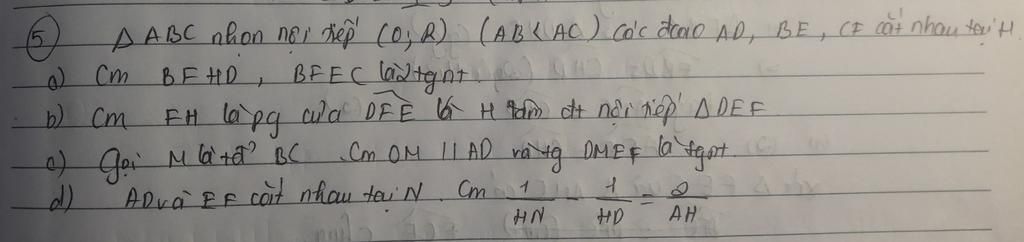 ⑤ Δ ABC nhọn nội tiếp (O; R) (AB < AC) Các đcao AD, BE, CF cắt nhau tại H
a) Cm BFHD, BFEC là 2 tgnt.
b) Cm FH là pg của DFE là H tâm đt nội tiếp Δ DEF
c) Gọi M là tđ BC. Cm OM // AD và tg DMEF là tgnt.
d) AD và EF cắt nhau tại N. Cm 1/HN - 1/HD = 2/AH